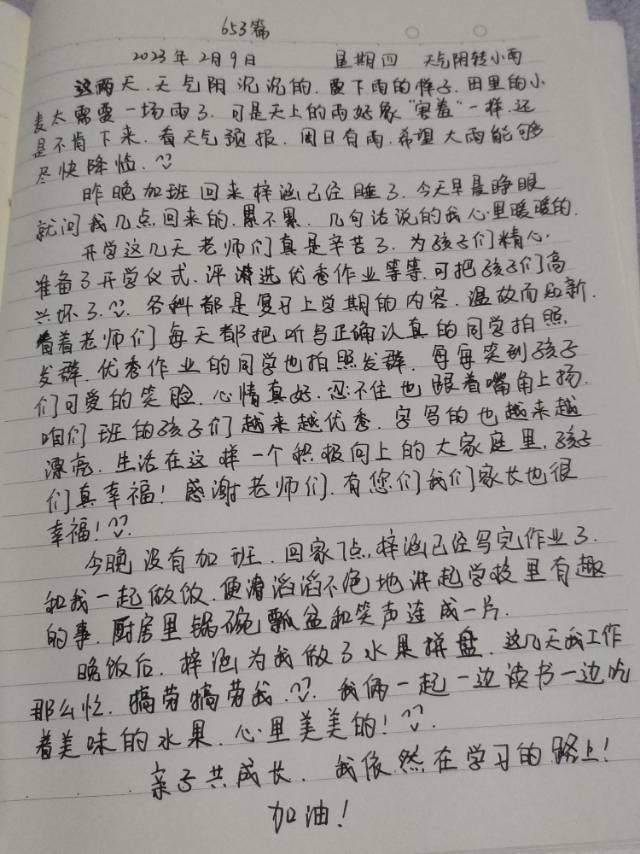 653篇
2023年2月9日 星期四 天气阴转小雨
这两天、天气阴沉沉的、要下雨的样子、田里的小
麦太需要一场雨了、可是天上的雨好象“害羞”一样、还
是不肯下来、看天气预报、周日有雨、希望大雨能够
尽快降临、
昨晚加班回来梓涵已经睡了、今天早晨睁眼
就问我几点回来的、累不累、几句话说的我心里暖暖的、
开学这几天老师们真是辛苦了、为孩子们精心、
准备了开学仪式、评选优秀作业等等、可把孩子们高
兴坏了、各科都是复习上学期的内容、温故而知新、
看着老师们每天都把听写正确认真的同学拍照
发群、优秀作业的同学也拍照发群、每每笑到孩子
们可爱的笑脸、心情真好、忍不住也跟着嘴角上扬、
咱们班的孩子们越来越优秀、字写的也越来越
漂亮、生活在这样一个积极向上的大家庭里、孩子
们真幸福！感谢老师们、有您们我们家长也很
幸福！
今晚没有加班、回家7点、梓涵已经写完作业了、
和我一起做饭、便滔滔不绝地讲起学校里有趣
的事、厨房里锅碗瓢盆和笑声连成一片、
晚饭后、梓涵为我做了水果拼盘、这几天我工作
那么忙、犒劳犒劳我、我俩一起一边读书一边吃
着美味的水果、心里美美的！
亲子共成长、我依然在学习的路上！
加油！